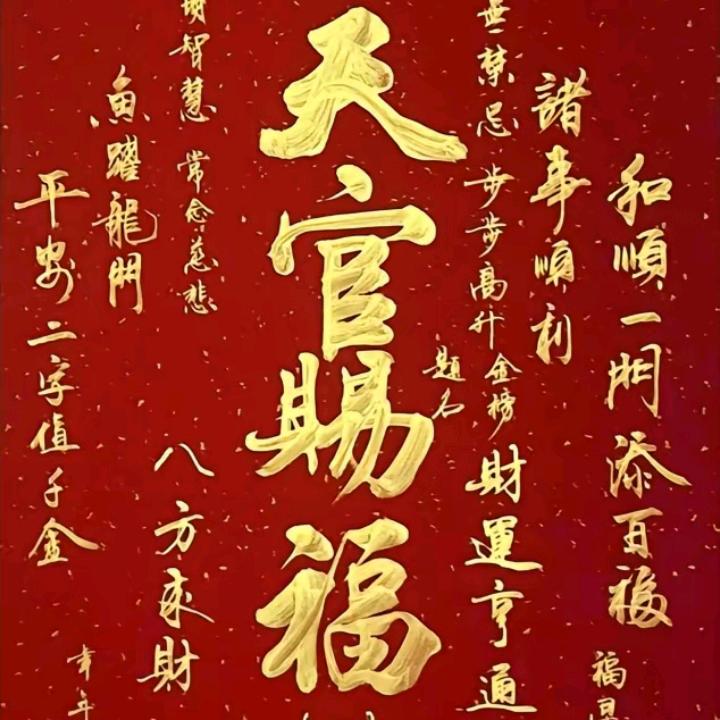 和順一門添百福
福
諸事順利
無禁忌 步步高升 金榜
題名
財運亨通
天官賜福
智慧 常念慈悲
八方來財
魚躍龍門
平安二字值千金
年